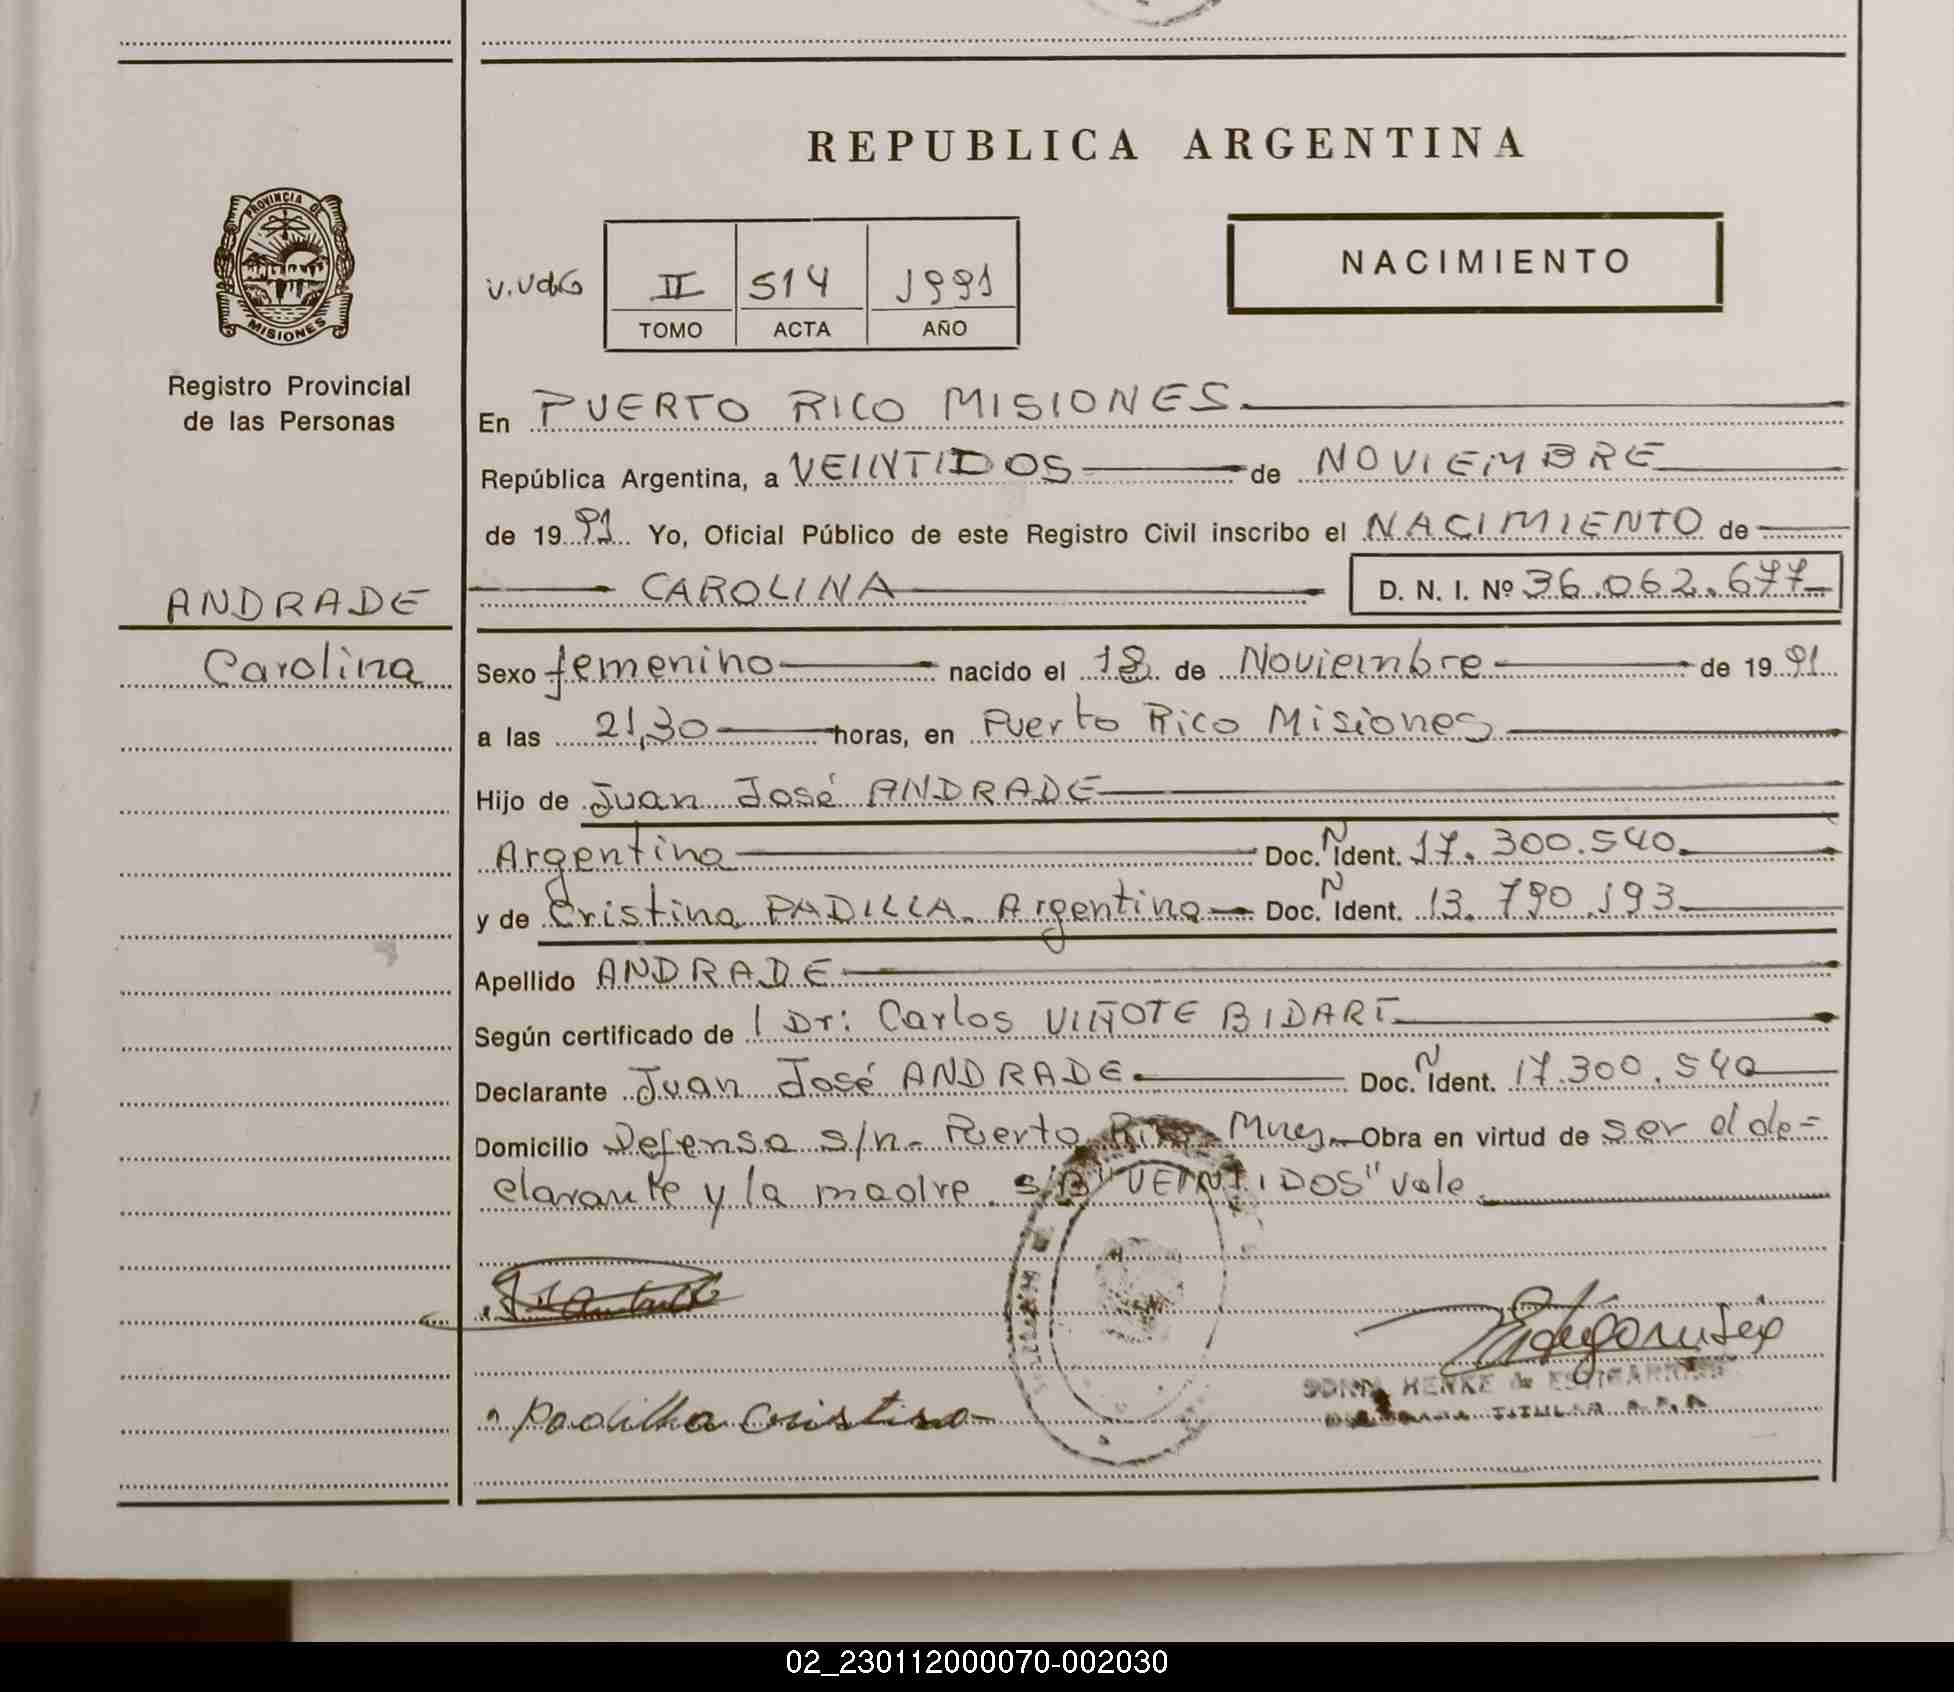 REPUBLICA ARGENTINA
PROVINCIA DE
MISIONES
Registro Provincial
de las Personas
ANDRADE
Carolina
II 514 1991
TOMO ACTA AÑO
NACIMIENTO
En PUERTO RICO MISIONES
República Argentina, a VEINTIDOS de NOVIEMBRE
de 19 91 Yo, Oficial Público de este Registro Civil inscribo el NACIMIENTO de
CAROLINA D. N. I. Nº 36.062.677
Sexo femenino nacido el 18 de Noviembre de 19 91
a las 21,30 horas, en Puerto Rico Misiones
Hijo de Juan José ANDRADE
Argentino Doc. N Ident. 17.300.540
y de Cristina PADILLA. Argentina Doc. N Ident. 13.790.193
Apellido ANDRADE
Según certificado de l Dr: Carlos VIÑOTE BIDART
Declarante Juan José ANDRADE Doc. N Ident. 17.300.540
Domicilio Defensa s/n. Puerto Rico Mnes. Obra en virtud de ser el de=
clarante y la madre. S/B "VEINTIDOS" vale
Padilla Cristina
HENKE de
TITULAR
02_230112000070-002030